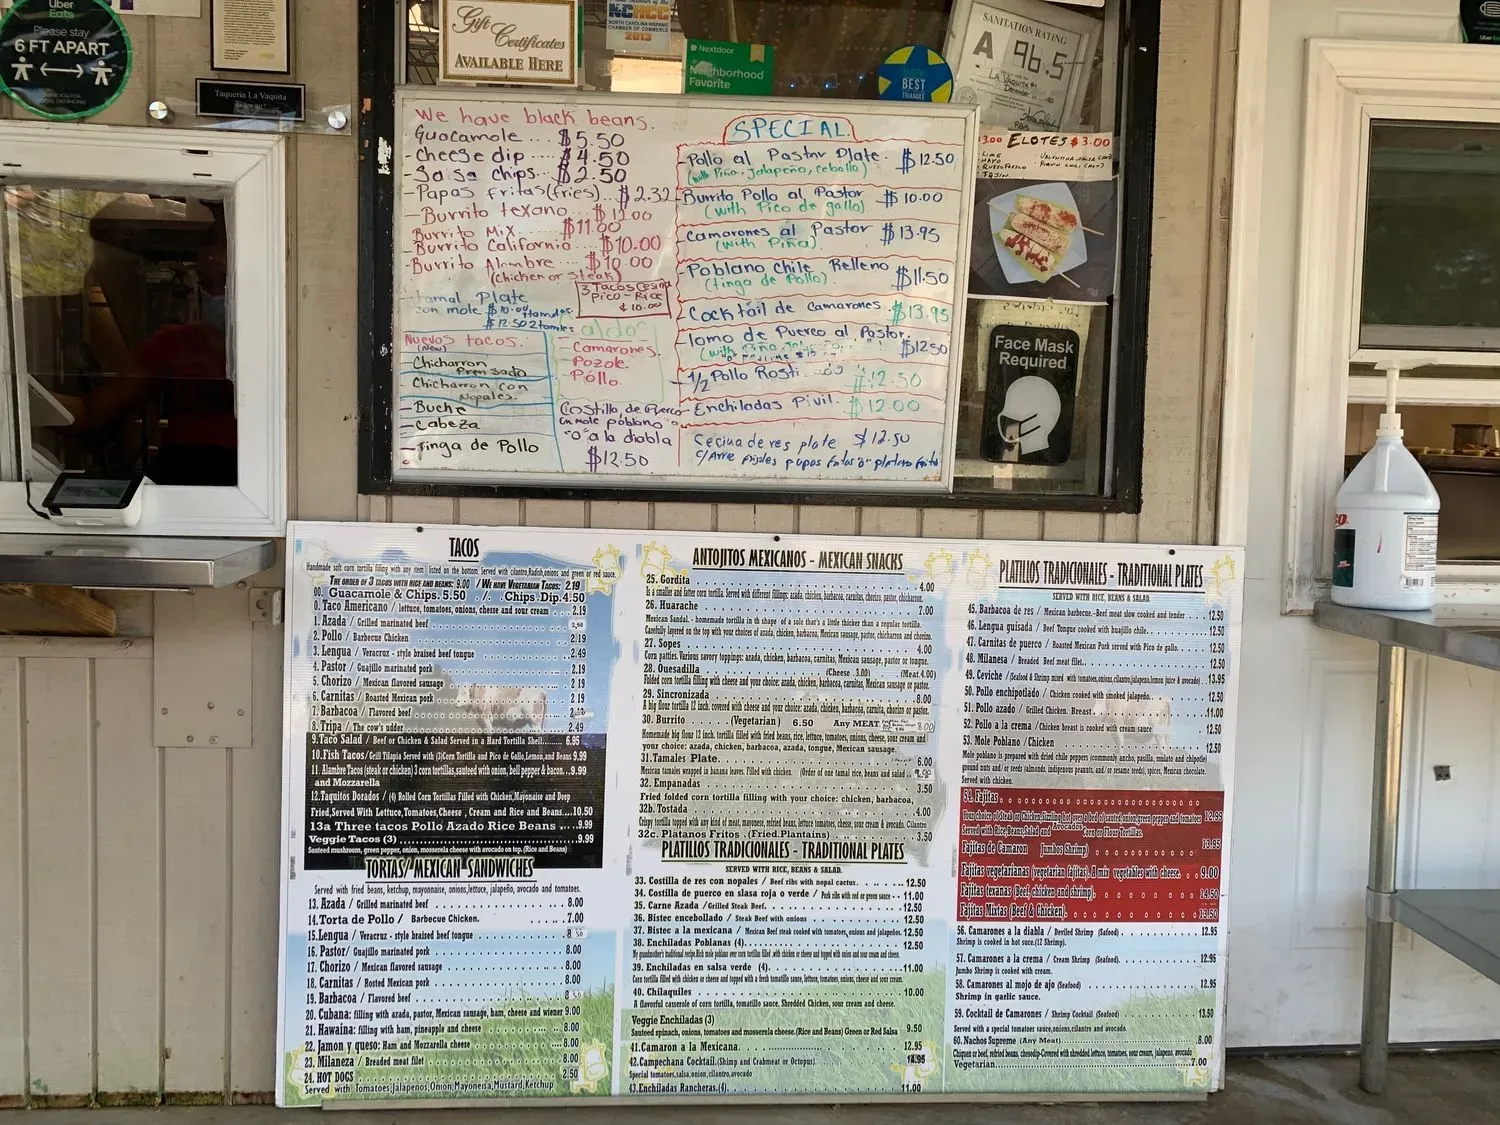 Uber
Eats
Please stay
6 FT APART
Taqueria La Vaquita
Gift
Certificates
AVAILABLE HERE
NORTH CAROLINA HISPANIC
CHAMBER OF COMMERCE
2013
Nextdoor
Neighborhood
Favorite
BEST
TRIANGLE
SANITATION RATING
A 96.5
LA VAQUITA
We have black beans.
Guacamole... $5.50
-Cheese dip.... $4.50
-Salsa chips... $2.50
-Papas fritas(fries)... $2.32
-Burrito texano... $12.00
Burrito Mix... $11.00
-Burrito California... $10.00
-Burrito Alambre... $10.00
(chicken or steak)
tamal Plate
con mole $10.00 1tamales
$12.50 2tamales
3 Tacos Cesina
Pico - Rice
$10.00
Nuevos tacos.
(New)
Chicharron
Prensado
Chicharron con
Nopales.
-Buche
-Cabeza
-Tinga de Pollo
aldos
-Camarones.
Pozole.
-Pollo.
Costilla de Puerco
en mole poblano "o"
"o" a la diabla
$12.50
SPECIAL.
-Pollo al Pastor Plate. $12.50
(with Piña, Jalapeño, cebolla)
-Burrito Pollo al Pastor $10.00
(with Pico de gallo).
-Camarones al Pastor $13.95
(with Piña).
-Poblano Chile Relleno $11.50
(tinga de Pollo)
-Cocktail de Camarones $13.95
-Lomo de Puerco al Pastor. $12.50
-1/2 Pollo Rostizado $12.50
-Enchiladas Pivil. $12.00
Secina de res plate $12.50
c/Arre frijoles papas fritas "o" platano frito
3.00 ELOTES $3.00
LIME
MAYO
QUESO FRESCO
TAJIN
Face Mask
Required
TACOS
Handmade soft corn tortilla filling with any item listed on the bottom. Served with cilantro, Radish, onions and green or red sauce.
THE ORDER OF 3 TACOS WITH RICE AND BEANS: 9.00 / WE HAVE VEGETARIAN TACOS: 2.19
00. Guacamole & Chips. 5.50 ./. Chips. Dip. 4.50
0. Taco Americano / lettuce, tomatoes, onions, cheese and sour cream . 2.19
1. Azada / Grilled marinated beef 2.50
2. Pollo / Barbecue Chicken 2.19
3. Lengua / Veracruz - style braised beef tongue 2.49
4. Pastor / Guajillo marinated pork 2.19
5. Chorizo / Mexican flavored sausage 2.19
6. Carnitas / Roasted Mexican pork 2.19
7. Barbacoa / Flavored beef
8. Tripa / The cow's udder 2.49
9. Taco Salad / Beef or Chicken & Salad Served in a Hard Tortilla Shell....... 6.95
10. Fish Tacos/Grill Tilapia Served with (3)Corn Tortilla and Pico de Gallo,Lemon,and Beans 9.99
11. Alambre Tacos (steak or chicken) 3 corn tortillas,sauteed with onion, bell pepper & bacon. ..9.99
and Mozzarella
12.Taquitos Dorados / (4) Rolled Corn Tortillas Filled with Chicken,Mayonaise and Deep
Fried,Served With Lettuce,Tomatoes,Cheese , Cream and Rice and Beans....10.50
13a Three tacos Pollo Azado Rice Beans ....9.99
Veggie Tacos (3) 9.99
Sauteed mushroom, green pepper, onion, mosserela cheese with avocado on top. (Rice and Beans)
TORTAS/ MEXICAN SANDWICHES
Served with fried beans, ketchup, mayonnaise, onions,lettuce, jalapeño, avocado and tomatoes.
13. Azada / Grilled marinated beef 8.00
14. Torta de Pollo / Barbecue Chicken. 7.00
15.Lengua / Veracruz - style braised beef tongue 8.50
16. Pastor/ Guajillo marinated pork 8.00
17. Chorizo / Mexican flavored sausage 8.00
18. Carnitas / Rosted Mexican pork 8.00
19. Barbacoa / Flavored beef 8.50
20. Cubana: filling with azada, pastor, Mexican sausage, ham, cheese and wiener 9.00
21. Hawaina: filling with ham, pineapple and cheese 8.00
22. Jamon y queso: Ham and Mozzarella cheese 8.00
23. Milaneza / Breaded meat filet 8.00
24. HOT DOGS 2.50
Served with Tomatoes,Jalapenos,Onion,Mayoneisa,Mustard,Ketchup
ANTOJITOS MEXICANOS - MEXICAN SNACKS
25. Gordita 4.00
Is a smaller and fatter corn tortilla. Served with different fillings: azada, chicken, barbacoa, carnitas, chorizo, pastor, chicharron.
26. Huarache 7.00
Mexican Sandal - homemade tortilla in the shape of a sole that's a little thicker than a regular tortilla.
Carefully layered on the top with your choices of azada, chicken, barbacoa, Mexican sausage, pastor, chicharron and chorizo.
27. Sopes 4.00
Corn patties. Various savory toppings: azada, chicken, barbacoa, carnitas, Mexican sausage, pastor or tongue.
28. Quesadilla (Cheese .3.00) (Meat.4.00)
Folded corn tortilla filling with cheese and your choice: azada, chicken, barbacoa, carnitas, Mexican sausage or pastor.
29. Sincronizada 8.00
A big flour tortilla 12 inch. covered with cheese and your choice: azada, chicken, barbacoa, carnita, chorizo or pastor.
30. Burrito (Vegetarian) 6.50 Any MEAT 8.00
Homemade big flour 12 inch. tortilla filled with fried beans, rice, lettuce, tomatoes, onions, cheese, sour cream and
your choice: azada, chicken, barbacoa, azada, tongue, Mexican sausage.
31.Tamales Plate. 6.00
Mexican tamales wrapped in banana leaves. Filled with chicken. (Order of one tamal rice, beans and salad 9.00
32. Empanadas 3.50
Fried folded corn tortilla filling with your choice: chicken, barbacoa,
32b. Tostada .4.00
Crispy tortilla topped with any kind of meat, mayonese, refried beans, lettuce tomatoes, cheese, sour cream & avocado. Cilantro
32c. Platanos Fritos . (Fried.Plantains) 3.50
PLATILLOS TRADICIONALES - TRADITIONAL PLATES
SERVED WITH RICE, BEANS & SALAD.
33. Costilla de res con nopales / Beef ribs with nopal cactus. 12.50
34. Costilla de puerco en slasa roja o verde / Pork ribs with red or green sauce 11.00
35. Carne Azada /Grilled Steak Beef. 12.50
36. Bistec encebollado / Steak Beef with onions 12.50
37. Bistec a la mexicana / Mexican Beef Steak cooked with tomatoes,onions and jalapeños. 12.50
38. Enchiladas Poblanas (4). 12.50
My grandmother's traditional recipe.Rich mole poblano over corn tortillas filled .with chicken or cheese and topped with onion and sour cream and cheese.
39. Enchiladas en salsa verde (4). 11.00
Corn tortilla filled with chicken or cheese and topped with a fresh tomatillo sauce, lettuce, tomatoes, onions, cheese and sour cream.
40. Chilaquiles 10.00
A flavorful casserole of corn tortilla, tomatillo sauce. Shredded Chicken, sour cream and cheese.
Veggie Enchiladas (3)
Sauteed spinach, onions, tomatoes and mosserela cheese.(Rice and Beans) Green or Red Salsa 9.50
41.Camaron a la Mexicana. 12.95
42.Campechana Cocktail.(Shimp and Crabmeat or Octopus). 14.95
Special tomatoes,salsa,onion,cilantro,avocado
43.Enchiladas Rancheras.(4). 11.00
PLATILLOS TRADICIONALES - TRADITIONAL PLATES
SERVED WITH RICE, BEANS & SALAD.
45. Barbacoa de res / Mexican barbecue.-Beef meat slow cooked and tender 12.50
46. Lengua guisada / Beef Tongue cooked with huajillo chile. 12.50
47. Carnitas de puerco / Roasted Mexican Pork served with Pico de gallo. 12.50
48. Milanesa / Breaded Beef meat filet. 12.50
49. Ceviche /(Seafood & Shrimp mixed with tomatoes,onions,cilantro,jalapeno,lemon juice & avocado) 13.95
50. Pollo enchipotlado / Chicken cooked with smoked jalapeño. 12.50
51. Pollo azado / Grilled Chicken. Breast 11.00
52. Pollo a la crema / Chicken breast is cooked with cream sauce 12.50
53. Mole Poblano /Chicken 12.50
Mole poblano is prepared with dried chile peppers (commonly ancho, pasilla, mulato and chipotle)
ground nuts and/or seeds (almonds, indigenous peanuts, and/or sesame seeds), spices, Mexican chocolate.
Served with chicken.
54. Fajitas 12.95
Your choice of Steak or Chicken,Sizzling hot over a bed of sauted,onion,green pepper and tomatoes
Served with Rice,Beans,Salad and Avocado Corn or Flour Tortillas.
Fajitas de Camaron Jumbos Shrimp) 12.95
Fajitas vegetarianas (vegetarian fajitas).A mix vegetables with cheese. 9.00
Fajitas texanas (Beef, chicken and shrimp). 14.50
Fajitas Mixtas (Beef & Chicken). 13.50
56. Camarones a la diabla / Deviled Shrimp (Safood) 12.95
Shrimp is cooked in hot suce.(12 Shrimp).
57. Camarones a la crema / Cream Shrimp (Seafood). 12.95
Jumbo Shrimp is cooked with cream.
58. Camarones al mojo de ajo (Seafood) 12.95
Shrimp in garlic sauce.
59. Cocktail de Camarones / Shrimp Cocktail (Seafood) 13.50
Served with a special tomatoes sauce,onions,cilantro and avocado.
60. Nachos Supreme (Any Meat) .8.00
Chiquen or beef, refried beans, chesedip-Covered with shredded lettuce, tomatoes, sour cream, jalapeno, avocado
Vegetarian 7.00